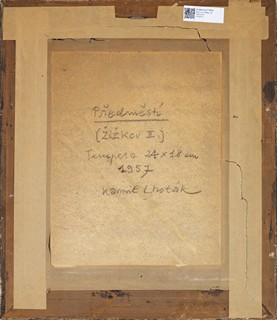 Předměstí
(Žižkov II.)
Tempera 24 x 18 cm
1957
Kamil Lhoták